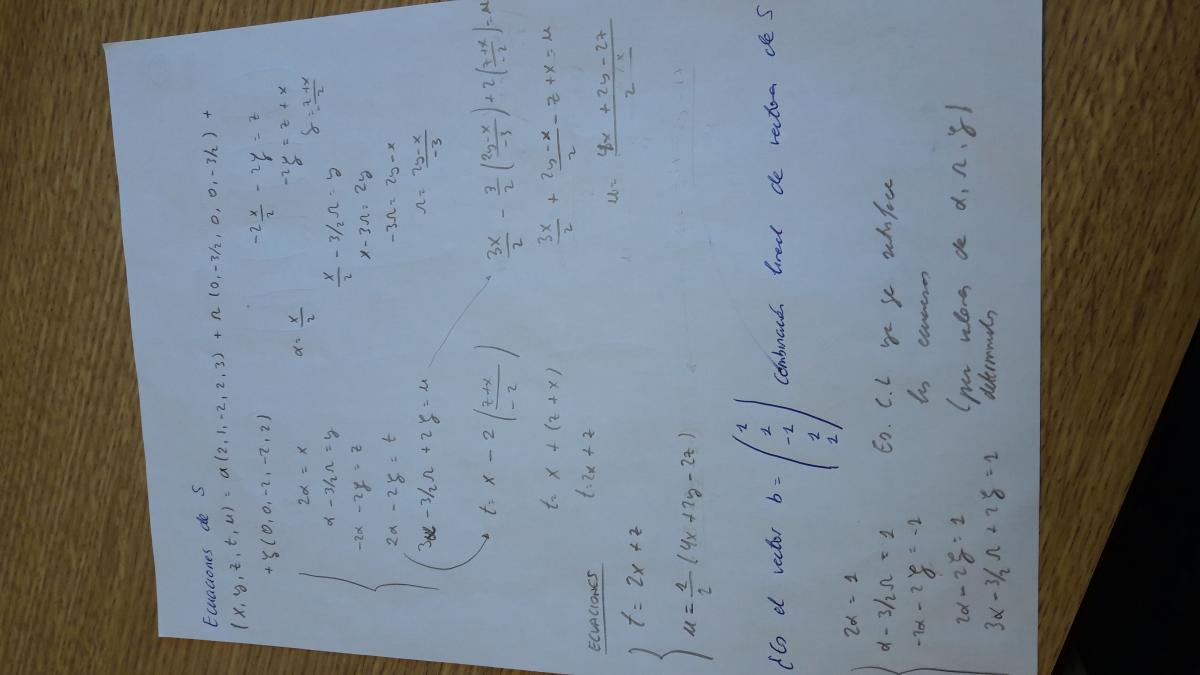 Ecuaciones de S
(x, y, z, t, u) = α(2, 1, -2, 2, 3) + r(0, -3/2, 0, 0, -3/2) +
+ ζ(0, 0, -2, -2, 2)
2α = x
α - 3/2 r = y
-2α - 2ζ = z
2α - 2ζ = t
3α - 3/2 r + 2ζ = u
α = x/2
x/2 - 3/2 r = y
x - 3r = 2y
-3r = 2y - x
r = (2y - x)/-3
-2 x/2 - 2ζ = z
-2ζ = z + x
ζ = (z + x)/2
t = x - 2((z + x)/-2)
t = x + (z + x)
t = 2x + z
3x/2 - 3/2((2y - x)/-3) + 2((z + x)/-2) = u
3x/2 + (2y - x)/2 - z + x = u
u = (4x + 2y - 2z)/2
ECUACIONES
t = 2x + z
u = 1/2 (4x + 2y - 2z)
¿Es el vector b = (1 1 -1 1 2) combinación lineal de vectores de S
2α = 1
α - 3/2 r = 1
-2α - 2ζ = -1
2α - 2ζ = 1
3α - 3/2 r + 2ζ = 2
Es. C.L ya que satisface
las ecuaciones
(para valores de α, r, ζ)
determinados